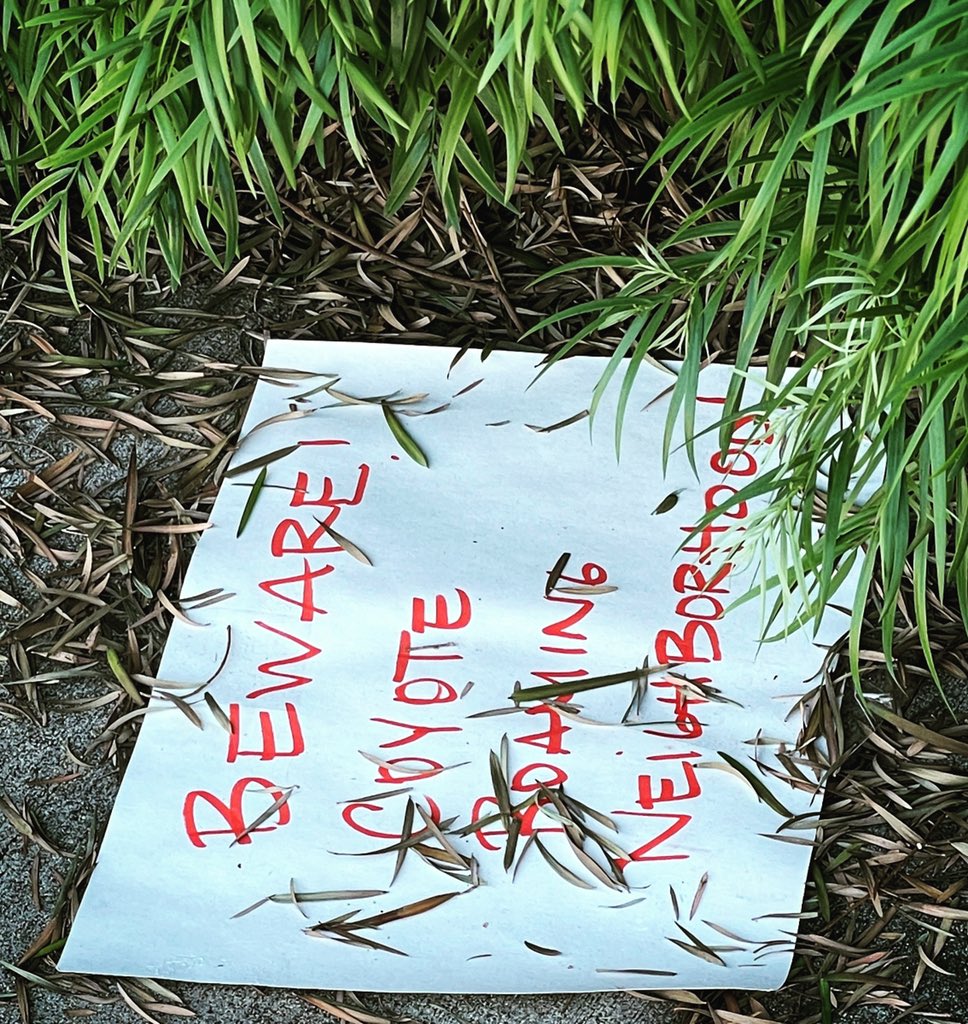 BEWARE!
COYOTE
ROAMING
NEIGHBORHOOD!